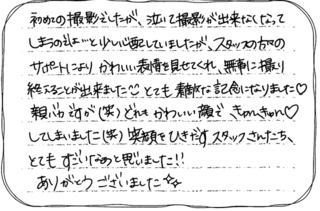 初めての撮影でしたが、泣いて撮影が出来なくなって
しまうのでは…と少し心配していましたが、スタッフの方の
サポートにより かわいい表情を見せてくれ、無事に撮り
終えることが出来ました とても素敵な記念になりました♡
親バカですが(笑) どれもかわいい顔で きゅんきゅん♡
してしまいました(笑) 笑顔をひきだすスタッフさんたち、
とてもすごいなぁと思いました!!
ありがとうございました☆☆